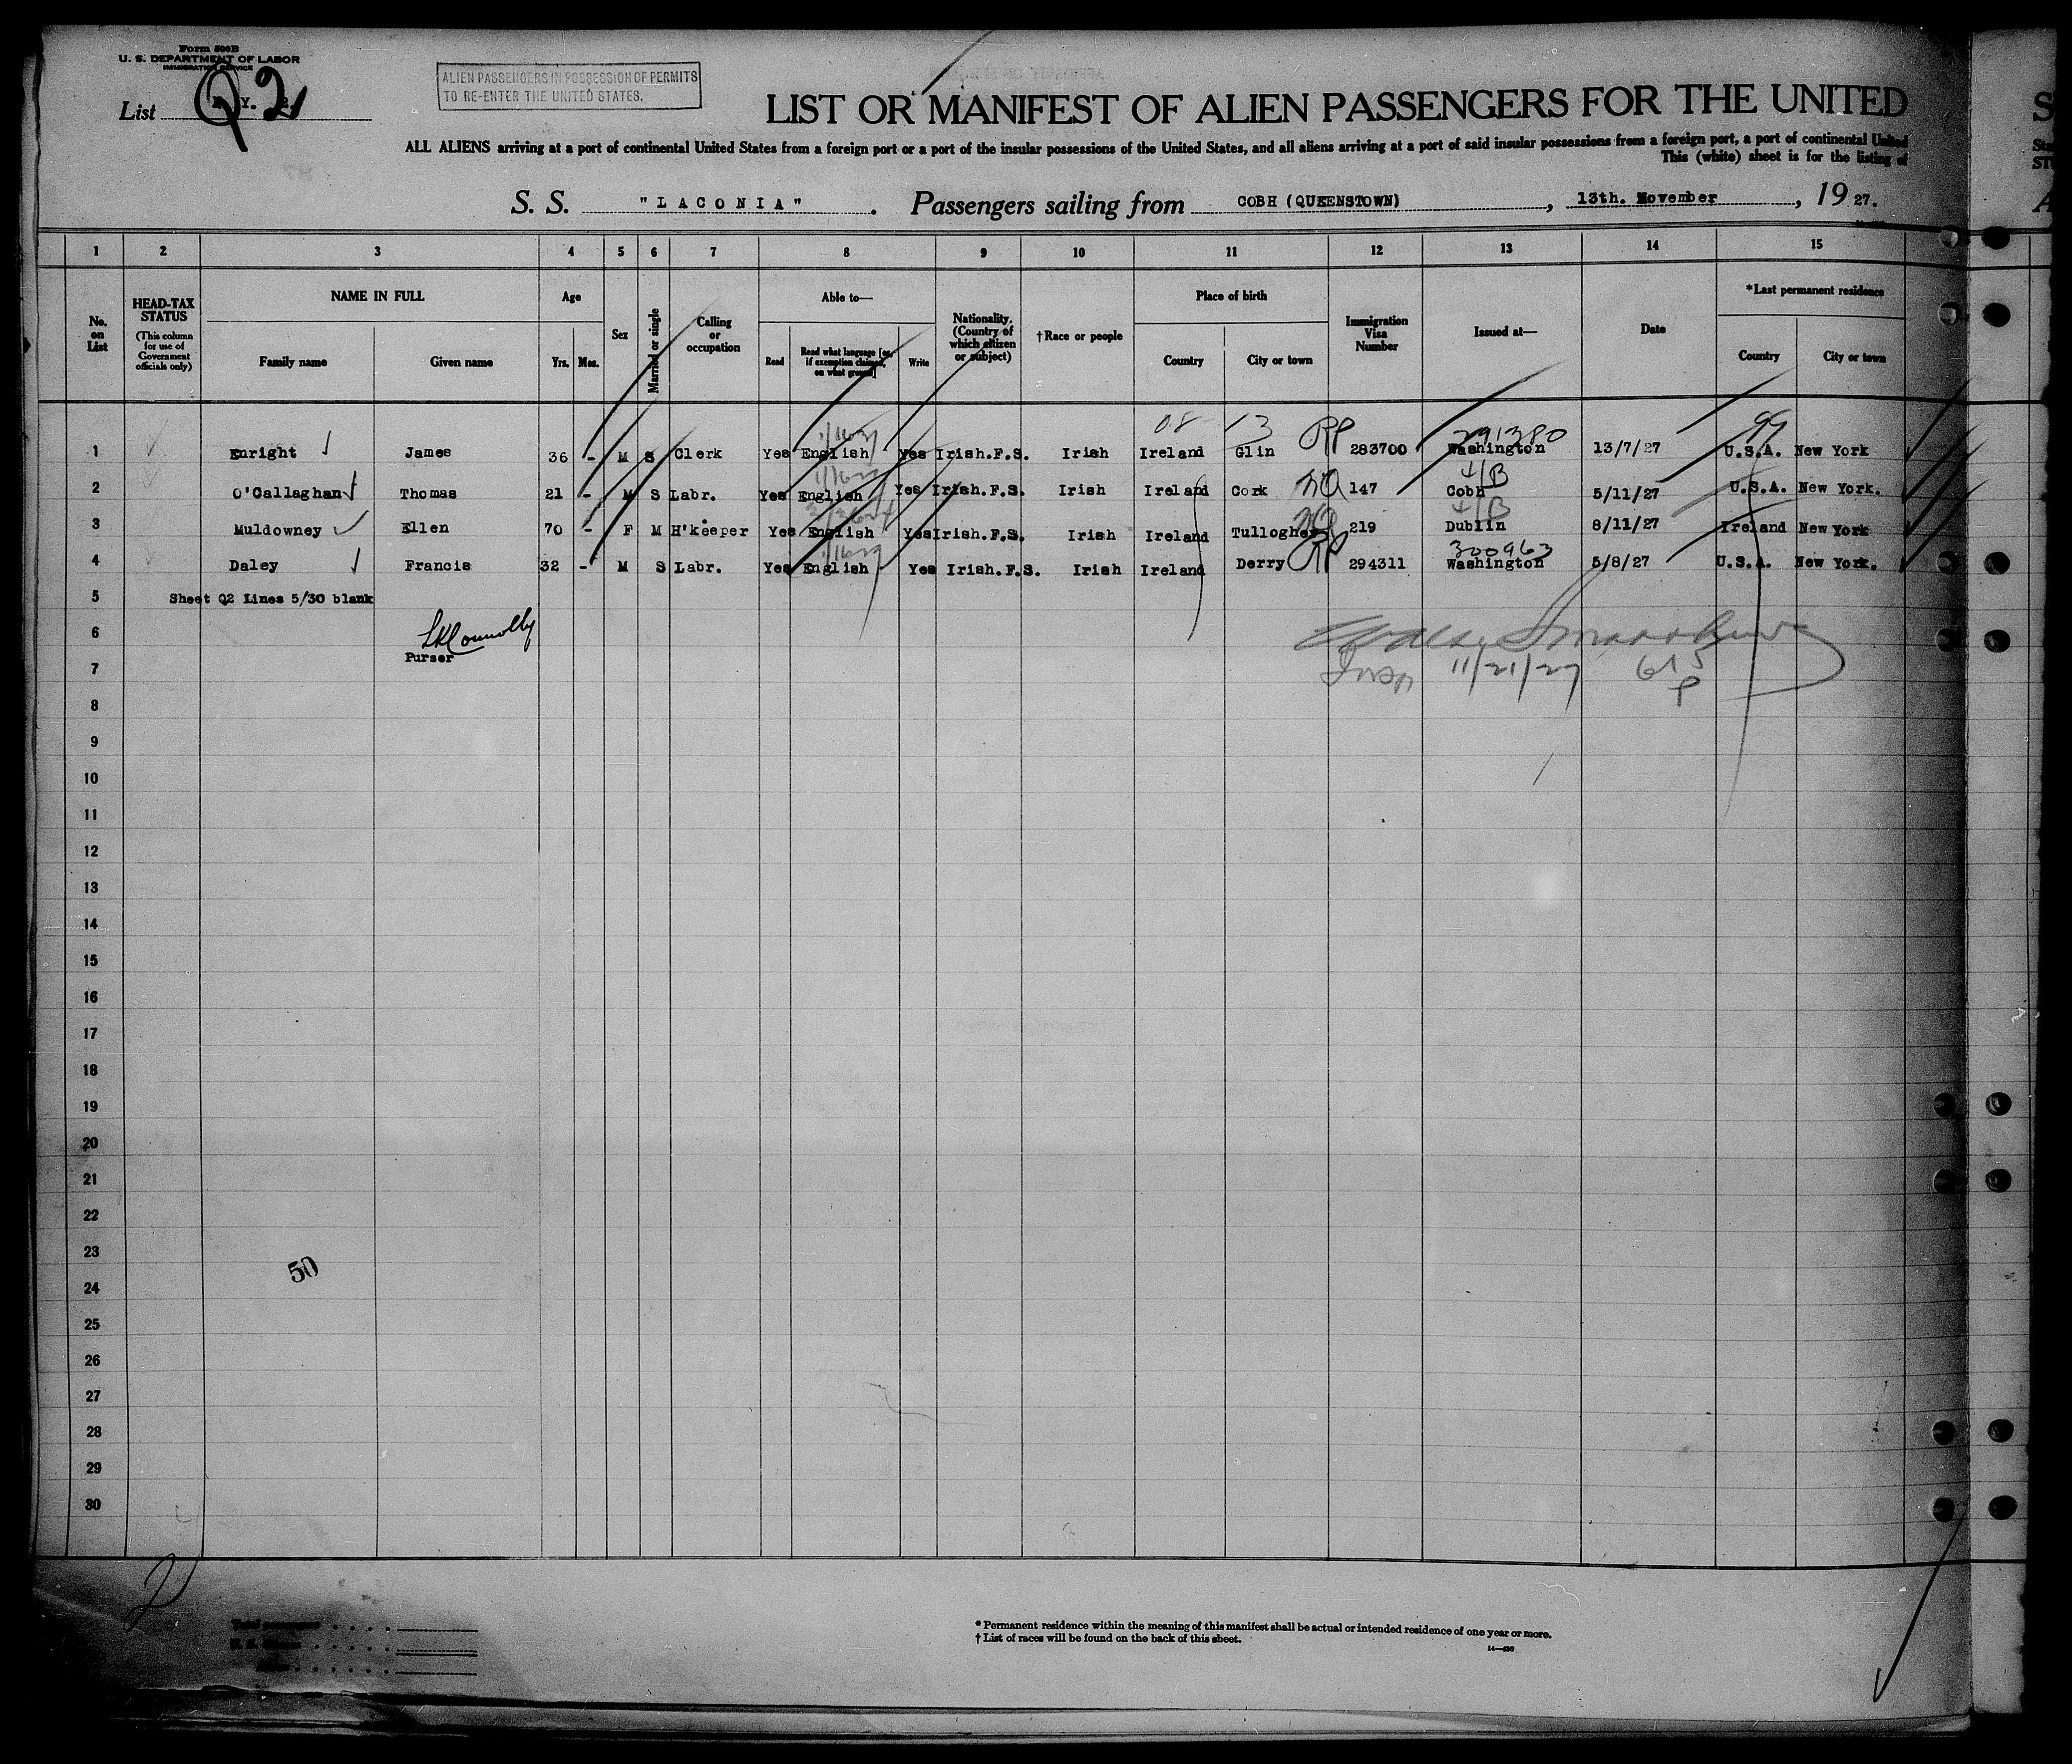 Form 500B
U. S. DEPARTMENT OF LABOR
IMMIGRATION SERVICE
List Q 2
ALIEN PASSENGERS IN POSSESSION OF PERMITS
TO RE-ENTER THE UNITED STATES.
LIST OR MANIFEST OF ALIEN PASSENGERS FOR THE UNITED
ALL ALIENS arriving at a port of continental United States from a foreign port or a port of the insular possessions of the United States, and all aliens arriving at a port of said insular possessions from a foreign port, a port of continental United
This (white) sheet is for the listing of
S. S. "LACONIA" . Passengers sailing from COBH (QUEENSTOWN) , 13th. November , 19 27.
1 2 3 4 5 6 7 8 9 10 11 12 13 14 15
No. on List
HEAD-TAX STATUS (This column for use of Government officials only)
NAME IN FULL Family name Given name
Age Yrs. Mos.
Sex
Married or single
Calling or occupation
Able to— Read Read what language [or, if exemption claimed, on what ground] Write
Nationality. (Country of which citizen or subject)
†Race or people
Place of birth Country City or town
Immigration Visa Number
Issued at—
Date
*Last permanent residence Country City or town
08 13 RP 291380 99
1 Enright James 36 - M S Clerk Yes English Yes Irish.F.S. Irish Ireland Glin 283700 Washington 13/7/27 U.S.A. New York
4/B
2 O'Callaghan Thomas 21 - M S Labr. Yes English Yes Irish.F.S. Irish Ireland Cork NQ 147 Cobh 5/11/27 U.S.A. New York.
4/B
3 Muldowney Ellen 70 - F M H'keeper Yes English Yes Irish.F.S. Irish Ireland Tullogher NQ 219 Dublin 8/11/27 Ireland New York
300963
4 Daley Francis 32 - M S Labr. Yes English Yes Irish.F.S. Irish Ireland Derry RP 294311 Washington 5/8/27 U.S.A. New York.
5 Sheet Q2 Lines 5/30 blank
6 Connolly
Purser
7 Insp 11/21/27
8
9
10
11
12
13
14
15
16
17
18
19
20
21
22
23
50
24
25
26
27
28
29
30
2
Total passengers
* Permanent residence within the meaning of this manifest shall be actual or intended residence of one year or more.
† List of races will be found on the back of this sheet.